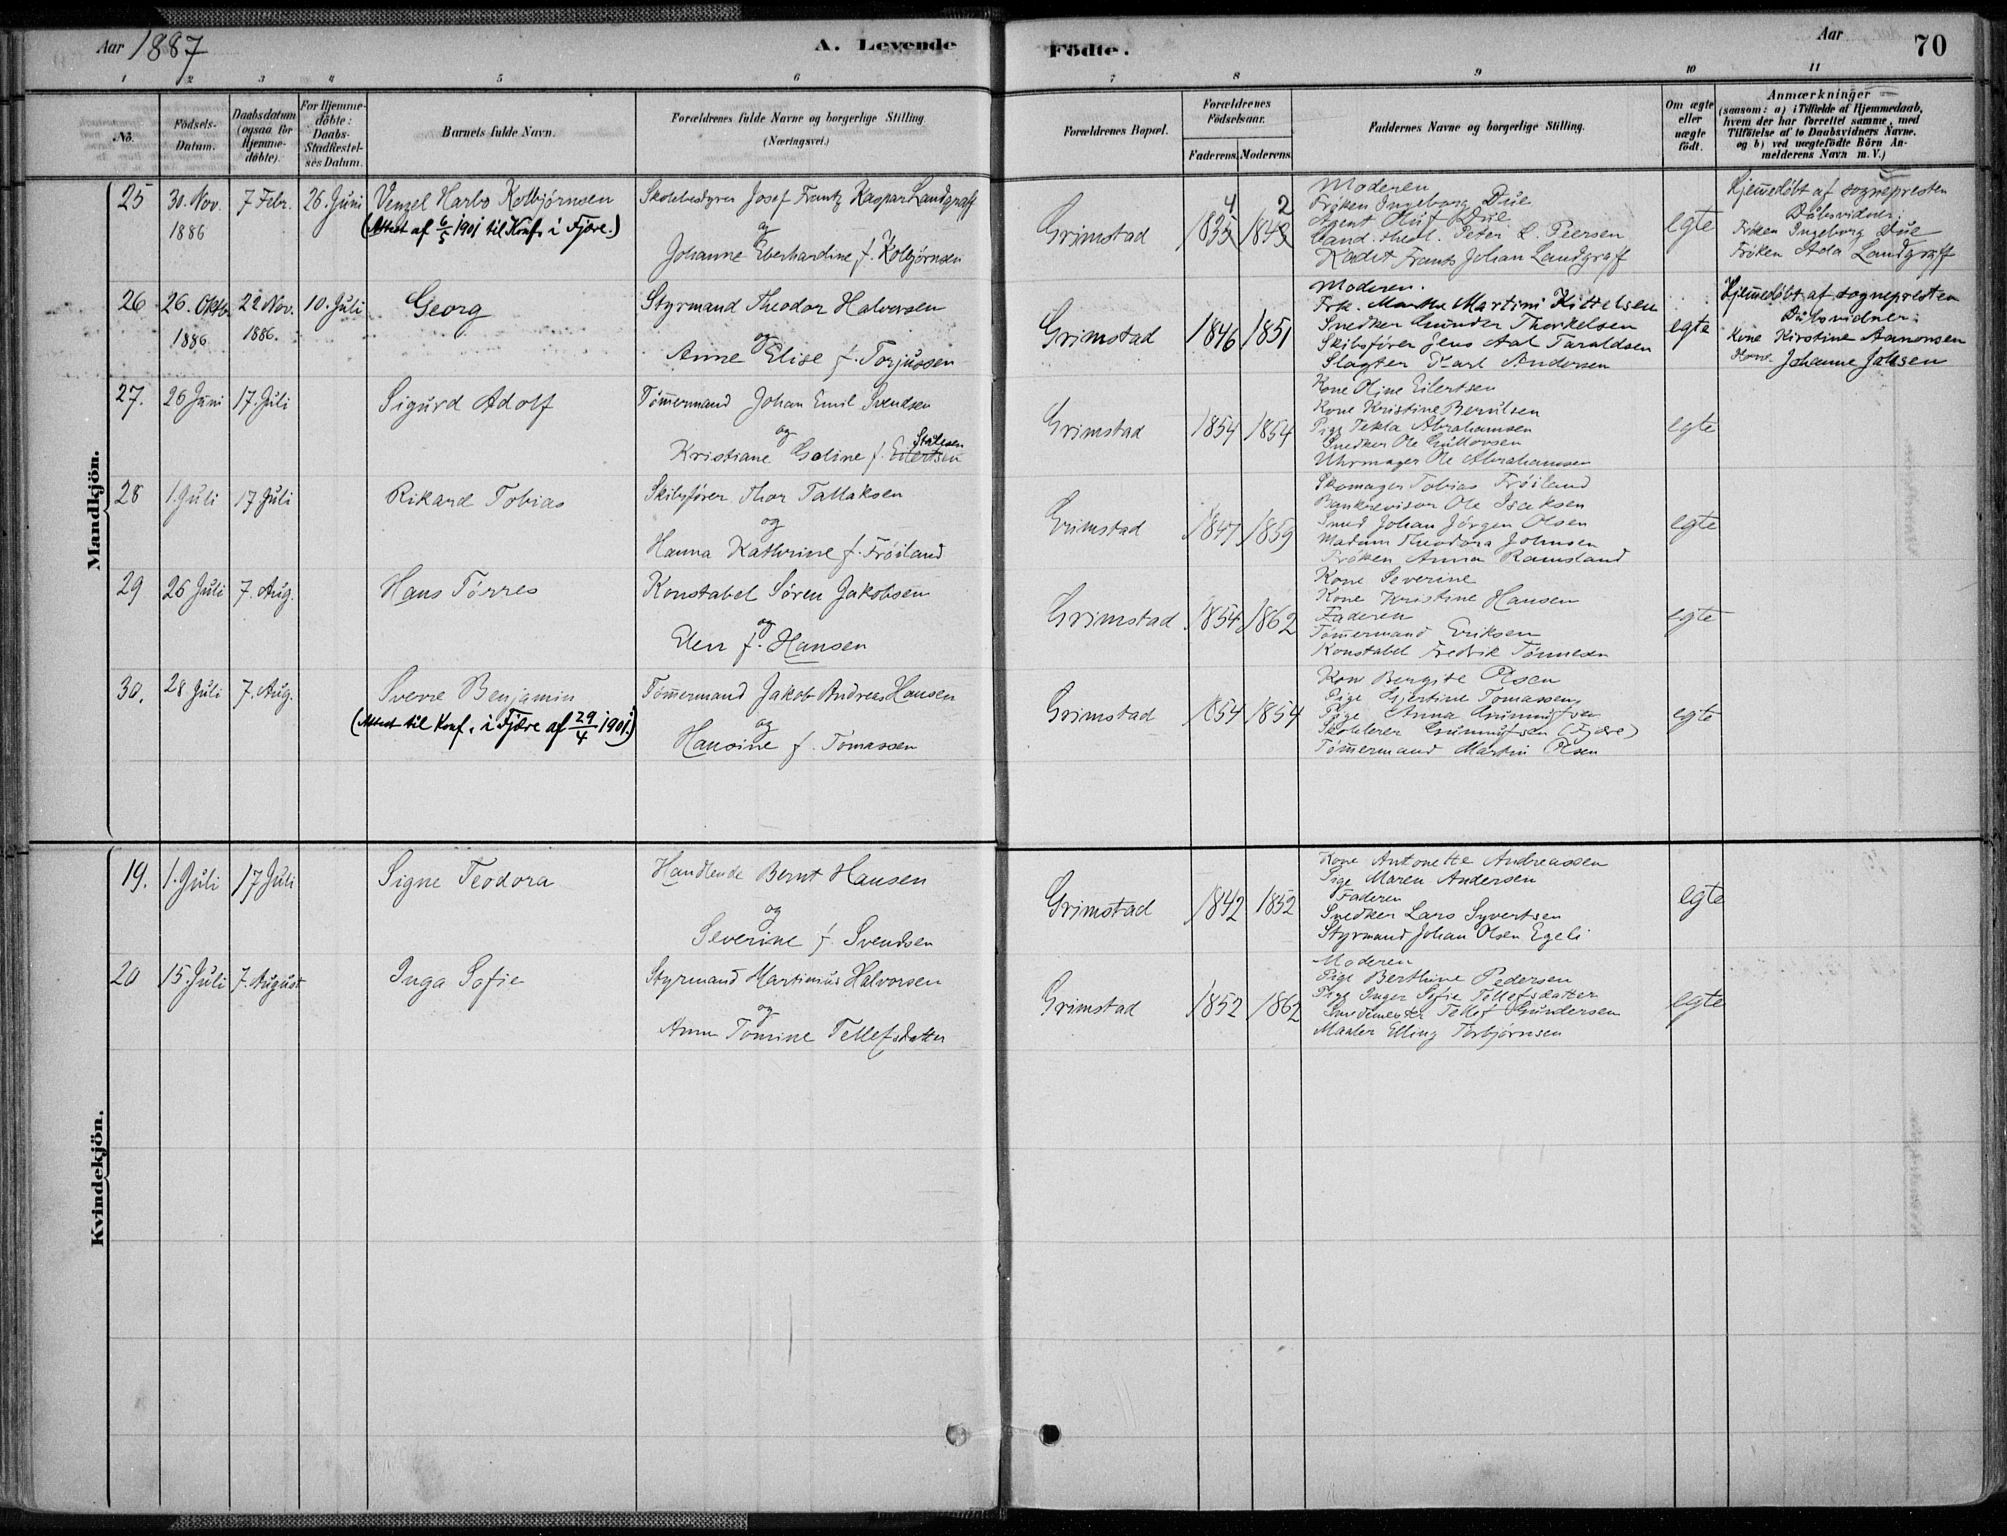 Aar 1887 A. Levende Födte. Aar 70
1 2 3 4 5 6 7 8 9 10 11
No. Födsels-Datum. Daabsdatum (ogsaa for Hjemmedöbte). For Hjemmedöbte: Daabs-Stadfæstelses Datum. Barnets fulde Navn. Forældrenes fulde Navne og borgerlige Stilling. (Næringsvei.) Forældrenes Bopæl. Forældrenes Födselsaar. Faderens. Moderens. Faddernes Navne og borgerlige Stilling. Om ægte eller uægte födt. Anmærkninger (saasom: a) i Tilfælde af Hjemmedaab, hvem der har forrettet samme, med Tilföielse af to Daabsvidners Navne. og b) ved uægtefödte Börn Anmelderens Navn m. V.)
Mandkjön.
25 30. Nov. 1886 7 Febr. 26. Juni Venzel Harbo Kolbjørnsen
(Attest af 6/5 1901 til Konf. i Fjære.)
Skolebestyrer Josef Frantz Kaspar Landgraff
og
Johanne Eberhardine f. Kolbjørnsen
Grimstad 1835 4 1843 2
Moderen
Frøken Ingeborg Due
Agent Oluf Due
Cand. theol. Peter L. Peersen
Kadet Frants Johan Landgraff
egte
Hjemmedøbt af sognepresten
Dåbsvidner:
Frøken Ingeborg Due
Frøken Ada Landgraff
26 26. Oktb. 1886 22 Nov. 1886. 10. Juli Georg
Styrmand Theodor Halvorsen
og
Anne Elise f. Torjussen
Grimstad 1846 1851
Moderen.
Frk. Martini Kittelsen
Snedker Gunder Thorkelsen
Skibsfører Jens Aal Taraldsen
Slagter Karl Andersen
egte
Hjemmedøbt af sognepresten
Dåbsvidner:
Kone Kirstine Aamonsen
Johanne Jahsen
27. 26 Juni 17. Juli Sigurd Adolf
Tømmermand Johan Emil Svendsen
og
Kristiane Goline f. Eilertsen Stålesen
Grimstad 1854 1854
Kone Oline Eilertsen
Kone Kristine Berulsen
Pige Tekla Abrahamsen
Snedker Ole Gullovsen
Uhrmager Ole Abrahamsen
egte
28 1. Juli 17 Juli Rikard Tobias
Skibsfører Thor Tallaksen
og
Hanna Kathrine f. Frøiland
Grimstad 1847 1859
Skomager Tobias Frøiland
Bankrevisor Ole Isaksen
Smed Johan Jørgen Olsen
Madam Theodora Johnsen
Frøken Anna Ramsland
egte
29 26 Juli 7. Aug. Hans Tørres
Konstabel Søren Jakobsen
og
Elen f. Hansen
Grimstad 1854 1862
Kone Severine
Kone Kristine Hansen
Faderen
Tømmermand Eriksen
Konstabel Fredrik Tønnesen
egte
30. 28 Juli 7. Aug. Sverre Benjamin
(Attest til Konf. i Fjære af 29/4 1901.)
Tømmermand Jakob Andreas Hansen
og
Hansine f. Tomassen
Grimstad 1854 1854
Kone Bergite Olsen
Pige Gjertine Tomassen
Pige Anna Gunnufsen
Skolelærer Gunnufsen (Fjære)
Tømmermand Martin Olsen
egte
Kvindekjön.
19. 1. Juli 17 Juli Signe Teodora
Handlende Bernt Hansen
og
Severine f. Svendsen
Grimstad 1842 1852
Kone Antonette Andreassen
Pige Maren Andersen
Faderen
Snedker Lars Syvertsen
Styrmand Johan Olsen Egeli
egte
20 15. Juli 7. August Inga Sofie
Styrmand Martinius Halvorsen
og
Anne Tomine Tellefsdatter
Grimstad 1852 1862
Moderen
Pige Berthine Pedersen
Pige Inger Sofie Tellefsdatter
Tellef Gundersen
Maaler Elling Torbjørnsen
egte